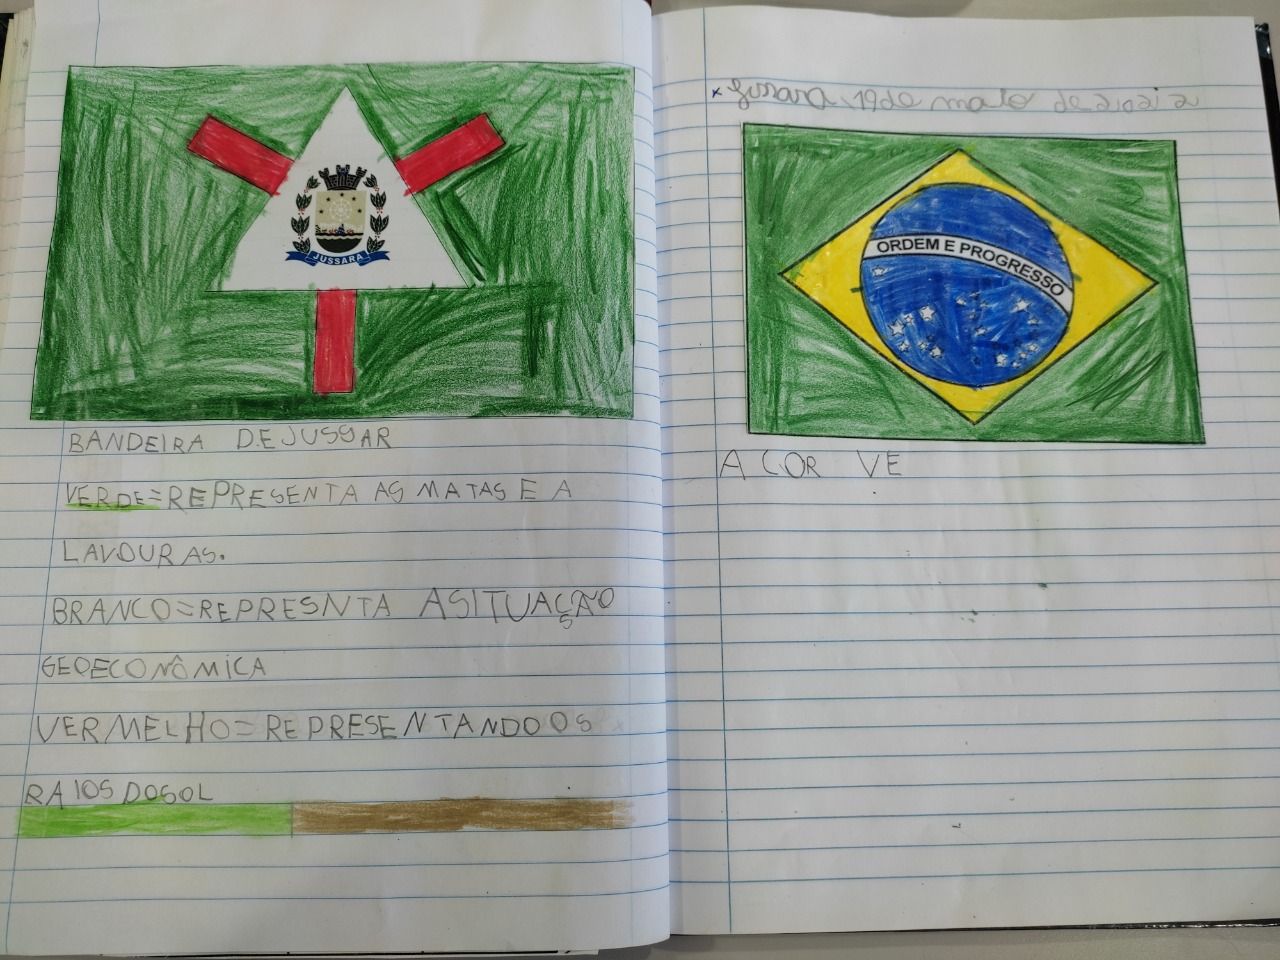 JUSSARA
BANDEIRA DE JUSSAR
VERDE=REPRESENTA AS MATAS E A
LAVOURAS.
BRANCO=REPRESNTA A SITUAÇÃO
GEOECONÔMICA
VERMELHO=REPRESENTANDO OS
RAIOS DO SOL
Jussara, 19 de maio de 2022
ORDEM E PROGRESSO
A COR VE